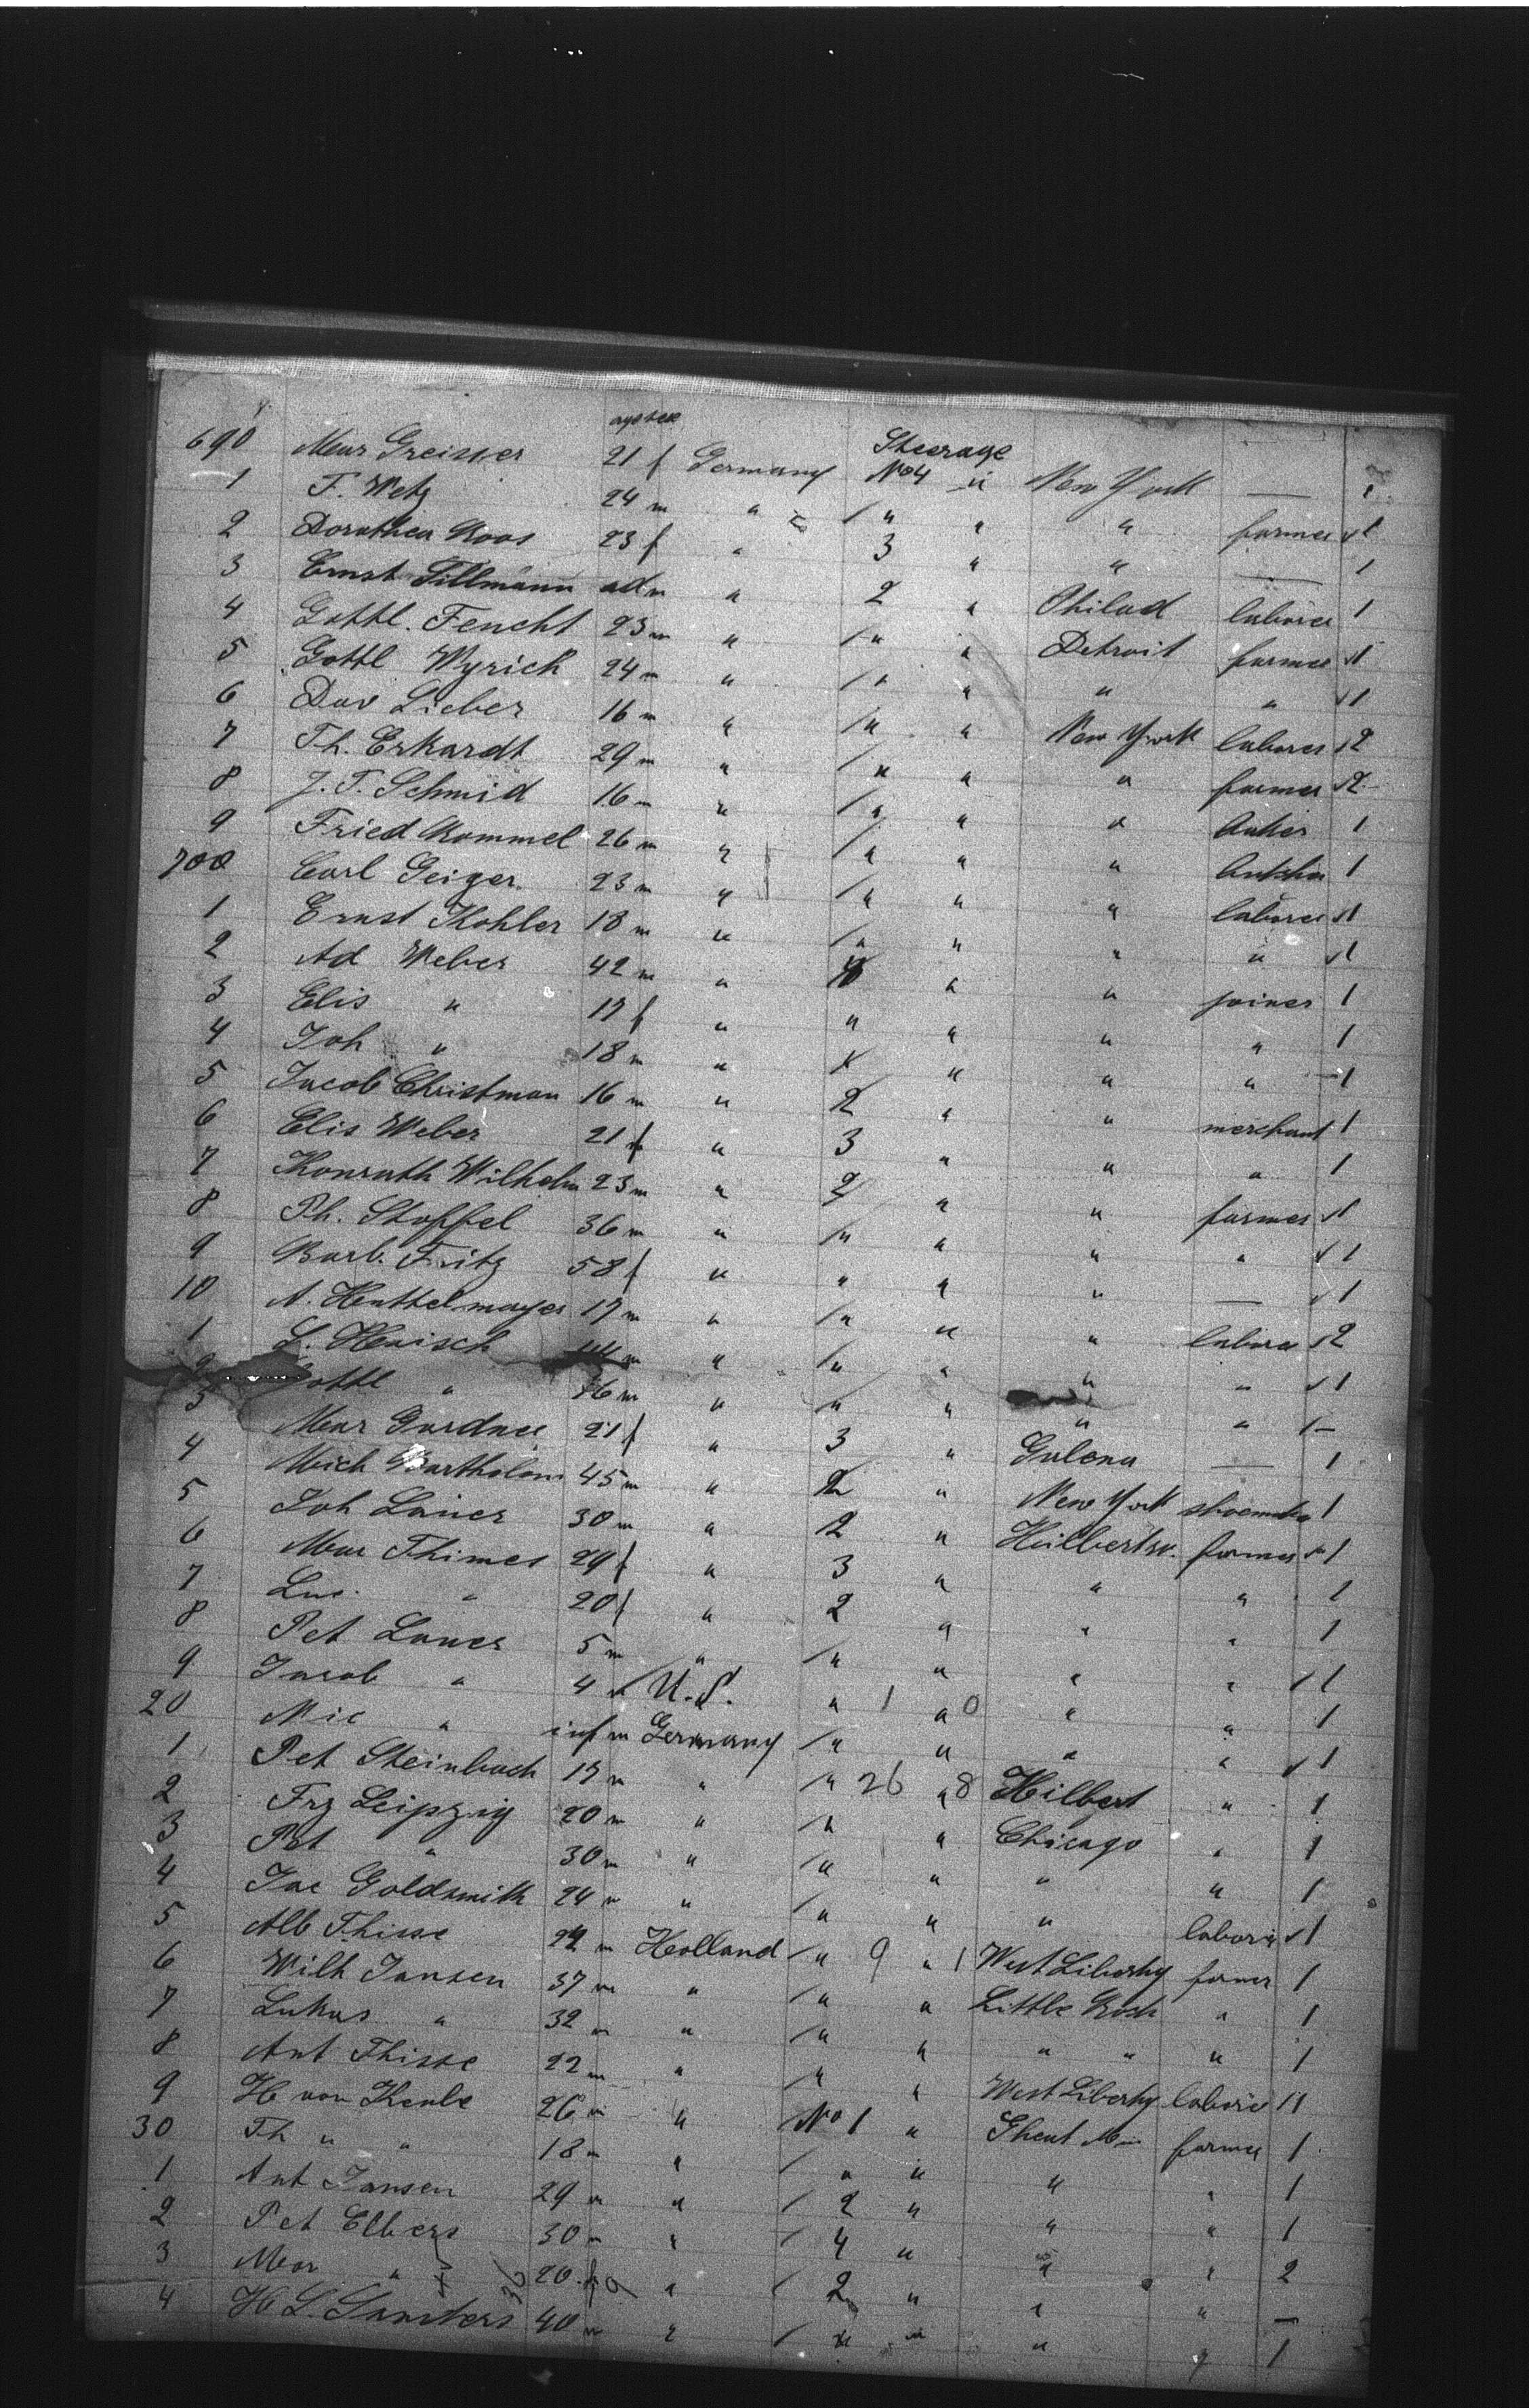 Steerage
690 Mar Greisser 21 f Germany No 4 " New York — 1
1 F. Wetz 24 m " " " " farmer 1
2 Dorothea Roos 23 f " 3 " " — 1
3 Ernst Tillmann ad m " 2 " Philad laborer 1
4 Gottl. Feucht 23 m " " " Detroit farmer 1
5 Gottl Wyrich 24 m " " " " " 1
6 Dav Lieber 16 m " " " New York laborer 2
7 Th. Erhardt 29 m " " " " farmer 2
8 J. F. Schmid 16 m " " " " baker 1
9 Fried Rommel 26 m " " " " 1
700 Carl Geiger 23 m " " " " laborer 1
1 Ernst Kohler 18 m " " " " " 1
2 Ad Weber 42 m " " " joiner 1
3 Elis " 17 f " " " " " 1
4 Joh " 18 m " " " " 1
5 Jacob Christman 16 m " 2 " " merchant 1
6 Elis Weber 21 f " 3 " " " 1
7 Konrath Wilhelm 23 m " 2 " " farmer 1
8 Ph. Stoffel 36 m " " " " " 1
9 Barb. Fritz 58 f " " " " — 1
10 A. Henttelmayer 17 m " " " " laborer 2
1 L. Henisch m " " " " " 1
2 Gottl " 16 m " " " " " 1
3 Mar Gardner 21 f " 3 " Galena — 1
4 Mich Bartholom 45 m " 2 " New York shoemaker 1
5 Joh Lauer 30 m " 2 " Hilbertsv. farmer 1
6 Mar Thimes 29 f " 3 " " " 1
7 Luc. " 20 f " 2 " " " 1
8 Pet Lauer 5 m " " " " " 1
9 Jacob " 4 m U.S. " 1 " 0 " " 1
20 Mic " inf m Germany " " " " 1
1 Pet Steinbach 17 m " " 26 " 8 Hilbert " 1
2 Frz Leipzig 20 m " " " Chicago " 1
3 Pet " 30 m " " " " " 1
4 Jac Goldsmith 24 m " " " " laborer 1
5 Alb Thisse m Holland " 9 " 1 West Liberty farmer 1
6 Wilh Jansen 37 m " " " Little Rock " 1
7 Lukas " 32 m " " " " " " 1
8 Ant Thisse 22 m " " " West Liberty laborer 1
9 H von Keule 26 m " No 1 " Ghent Min farmer 1
30 Th " " 18 m " " " " " 1
1 Ant Jansen 29 m " 2 " " " 1
2 Pet Elbers 30 m " 4 " " " 2
3 Mar " 20 f " 2 " " " —
4 H L. 40 m " " " " " 1
36 9